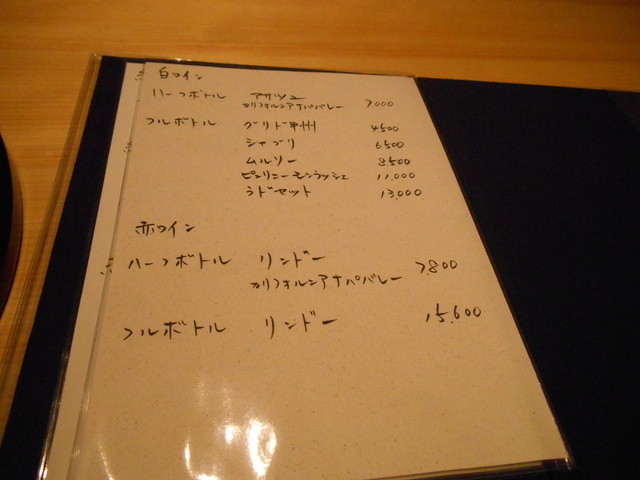 白ワイン
ハーフボトル アサツユ
カリフォルンアナパバレー 7,000
フルボトル グリド甲州 4500
シャブリ 6500
ムルソー 8,500
ピュリニーモンラッシェ 11,000
ラドセット 13,000
赤ワイン
ハーフボトル リンドー
カリフォルンアナパバレー 7,800
フルボトル リンドー 15,600